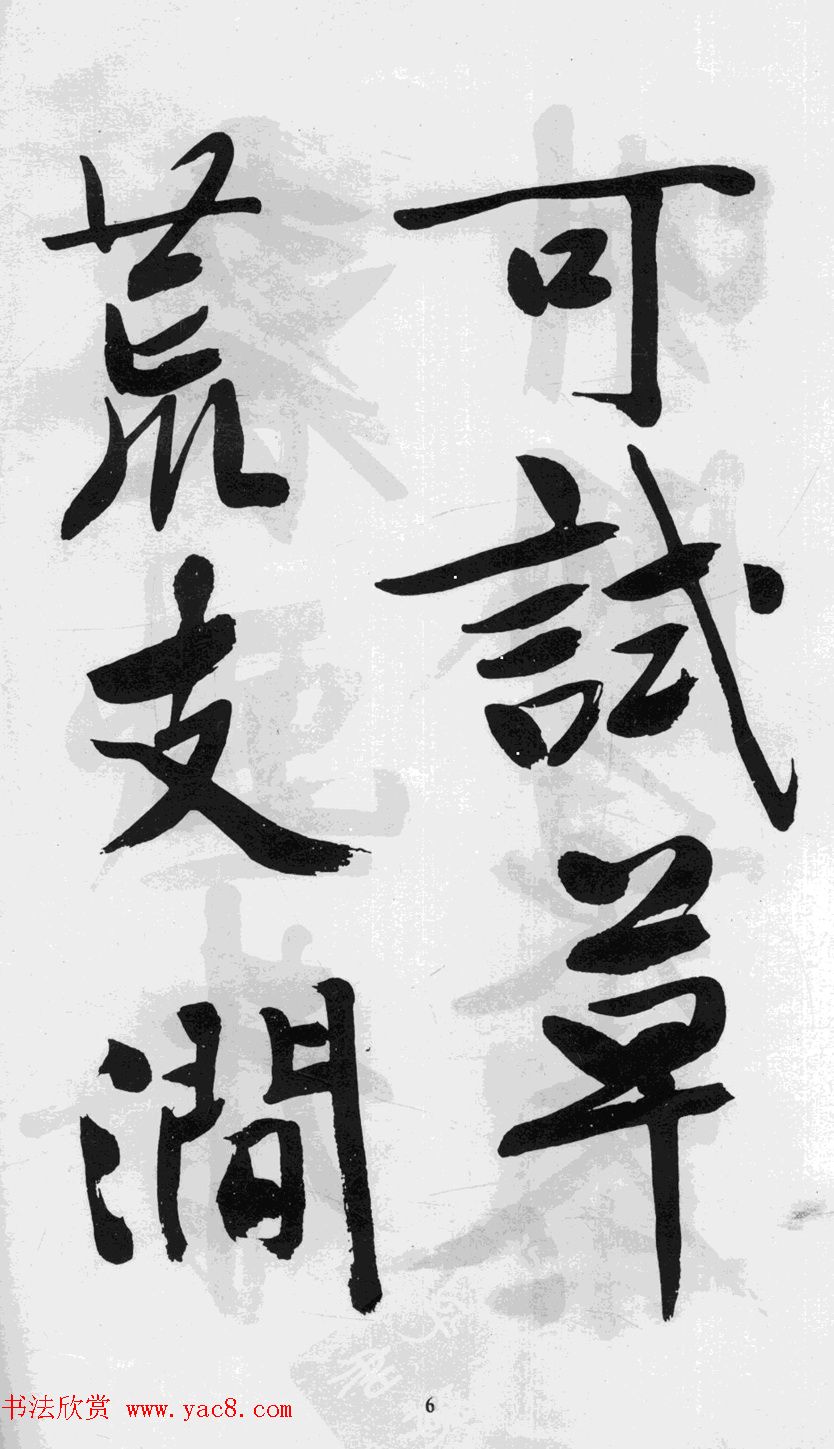 可試草
荒支澗
6
书法欣赏 www.yac8.com